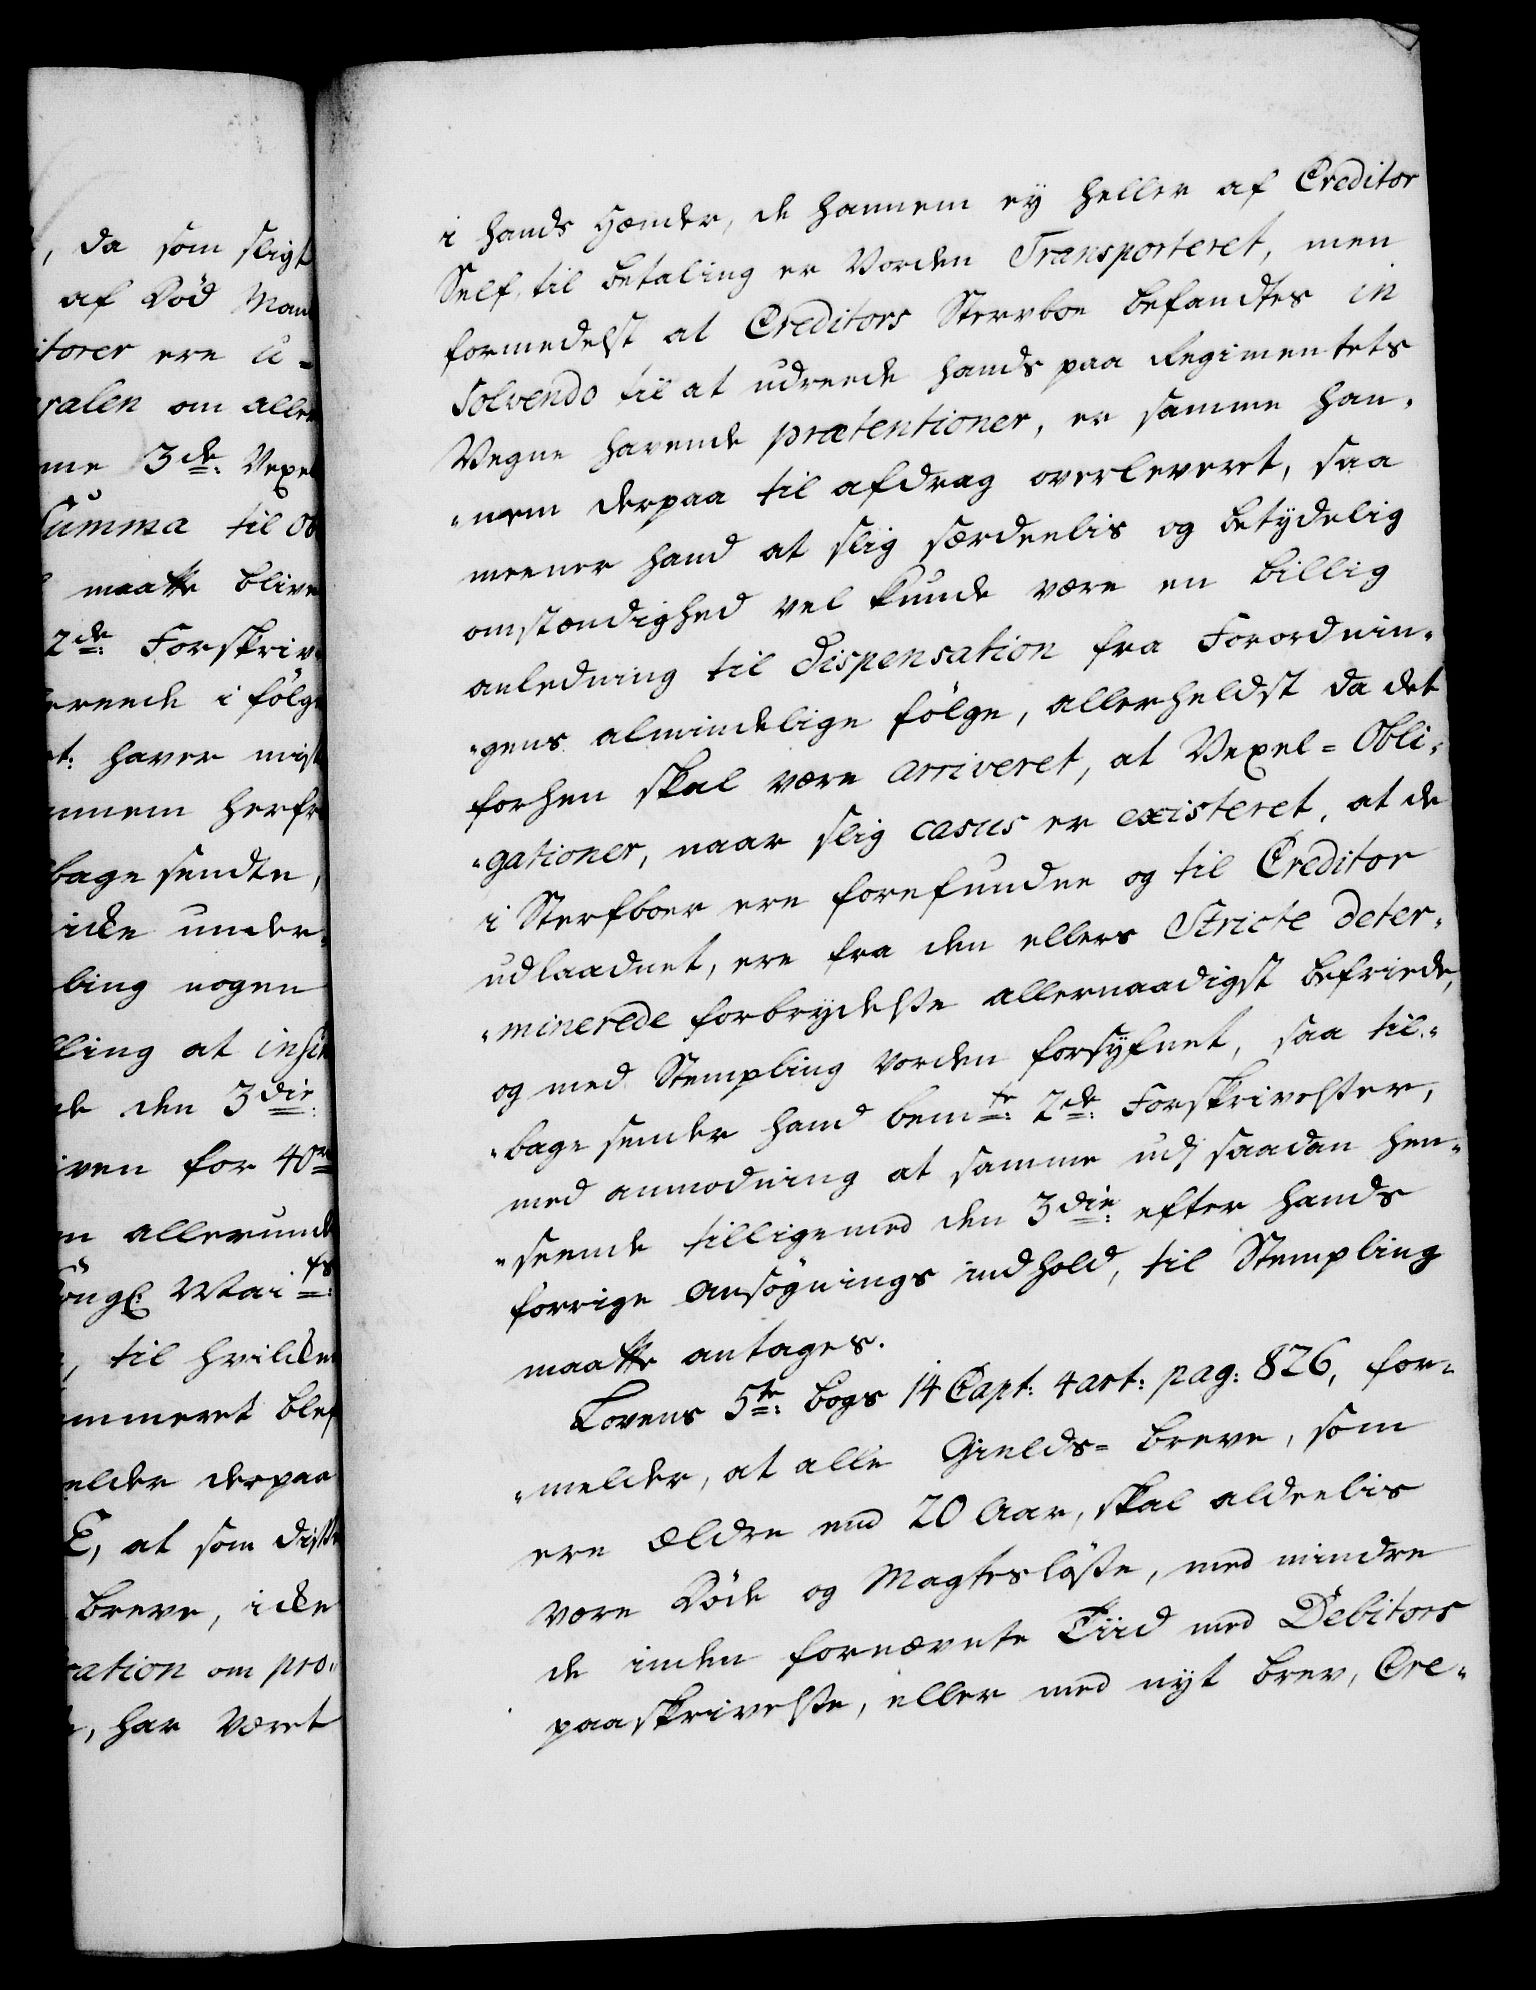 , da som sligt
af Död Man
itorer ere u-
salen om aller
me 3de: Vexel
Summa til Ob
maatte blive
2de: Forskriv
ereede i følge
et: haver mist
annem herfr
bage sendte,
icke under-
bling nogen
lling at insin
de den 3die:
iven for 40
en allerund
Kongl: Mai ts:
, til hvilcken
ummeret blef
elder derpaa
E, at som diss
breve, icke
ration om pro-
, har været
i hands Hænder, de hannem ey heller af Creditor
Self til betaling er Vorden Transporteret, men
formedelst at Creditors Stervboe befandtes in
solvendo til at udreede hands paa Regimentets
Vegne havende prætentioner, er samme han-
-nem derpaa til afdrag overleveret, saa
meener hand at slig særdeelis og betydelig
omstændighed vel kunde være en billig
anledning til dispensation fra Forordnin-
-gens almindelige følge, allerheldst da det
forhen skal være arriveret, at Vexel= Obli-
-gationer, naar slig casus er existeret, at de
i Sterfboer ere forefundne og til Creditor
udlaadnet, ere fra den ellers Stricte deter-
-minerede forbrydelse allernaadigst befriede,
og med Stempling vorden forsyfnet, saa til-
-bage sender hand bemte: 2de: Forskrivelser,
med anmodning at samme udj saadan hen-
-seende tilligemed den 3die: efter hands
forrige Ansøgnings indhold, til Stempling
maatte antages.
Lovens 5te: bogs 14 Capt: 4 art: pag: 826, for-
-melder, at alle Gields= breve, som
ere Ældre end 20 Aar, skal aldeelis
være Døde og Magtesløse, med mindre
de inden fornævnte Tiid med Debitors
paaskrivelse, eller med nyt brev, Cre-